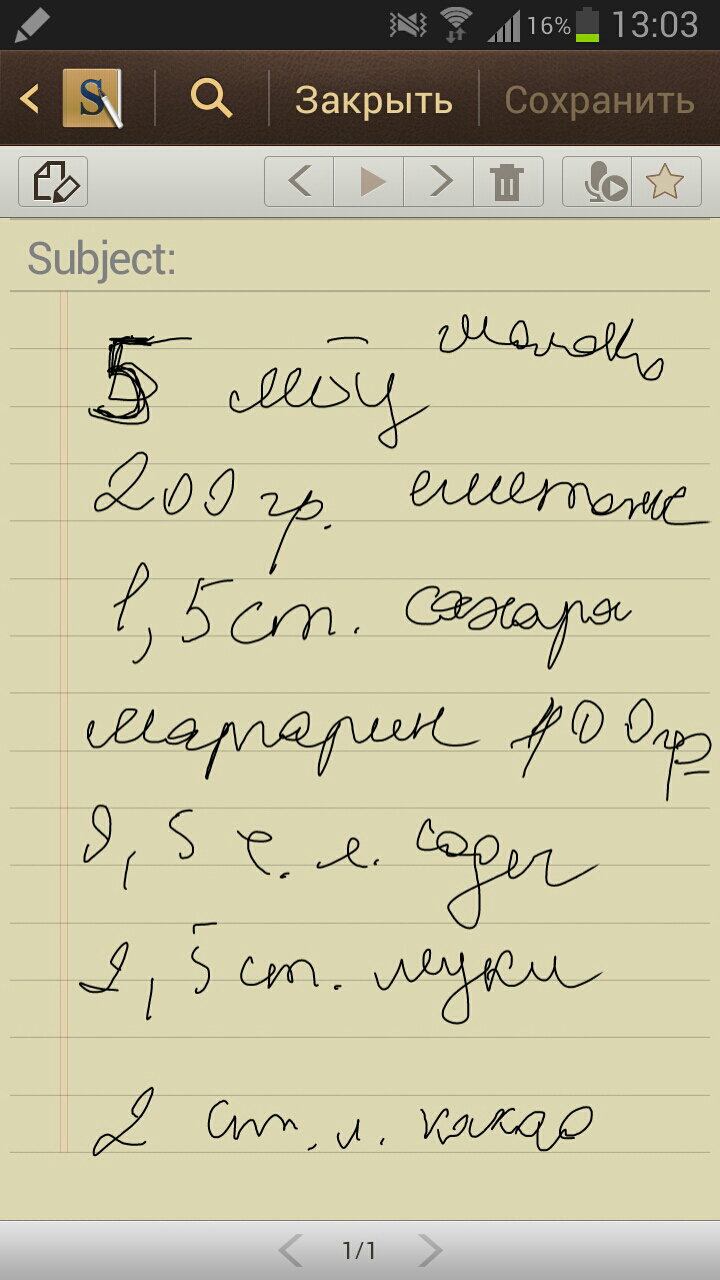 16% 13:03
S Закрыть Сохранить
Subject:
молоко
5 яиц
200 гр. сметаны
1,5 ст. сахара
маргарин 100 гр
0,5 ч. л. соды
2,5 ст. муки
2 ст. л. какао
1/1